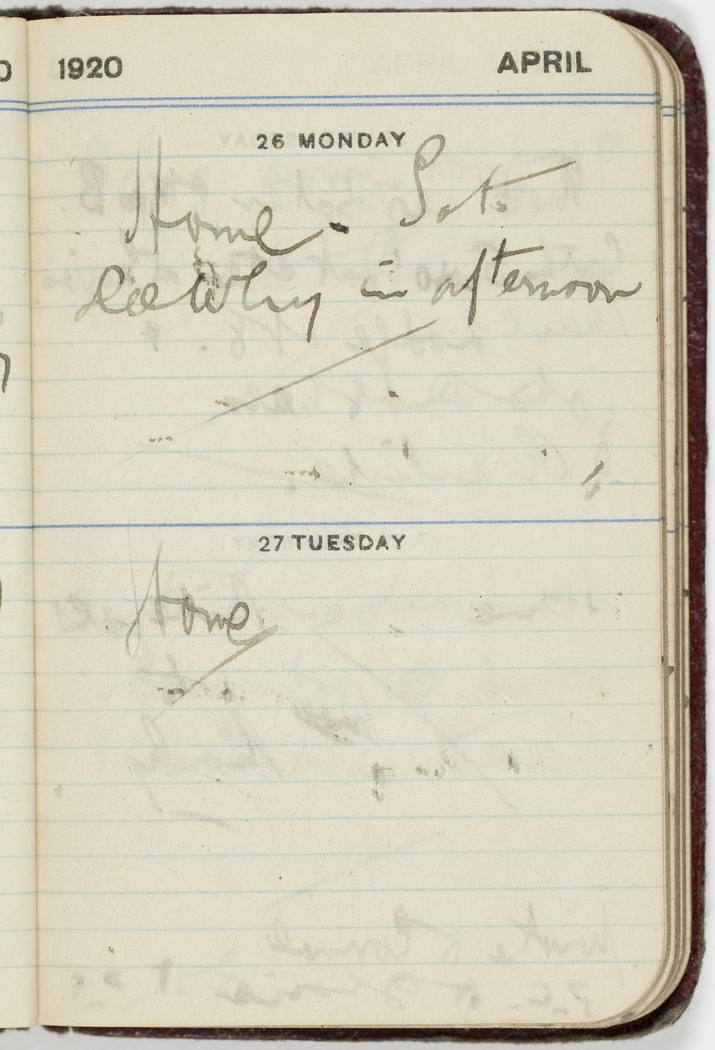 1920 APRIL
26 MONDAY
Home - Sat
in afternoon
27 TUESDAY
Home